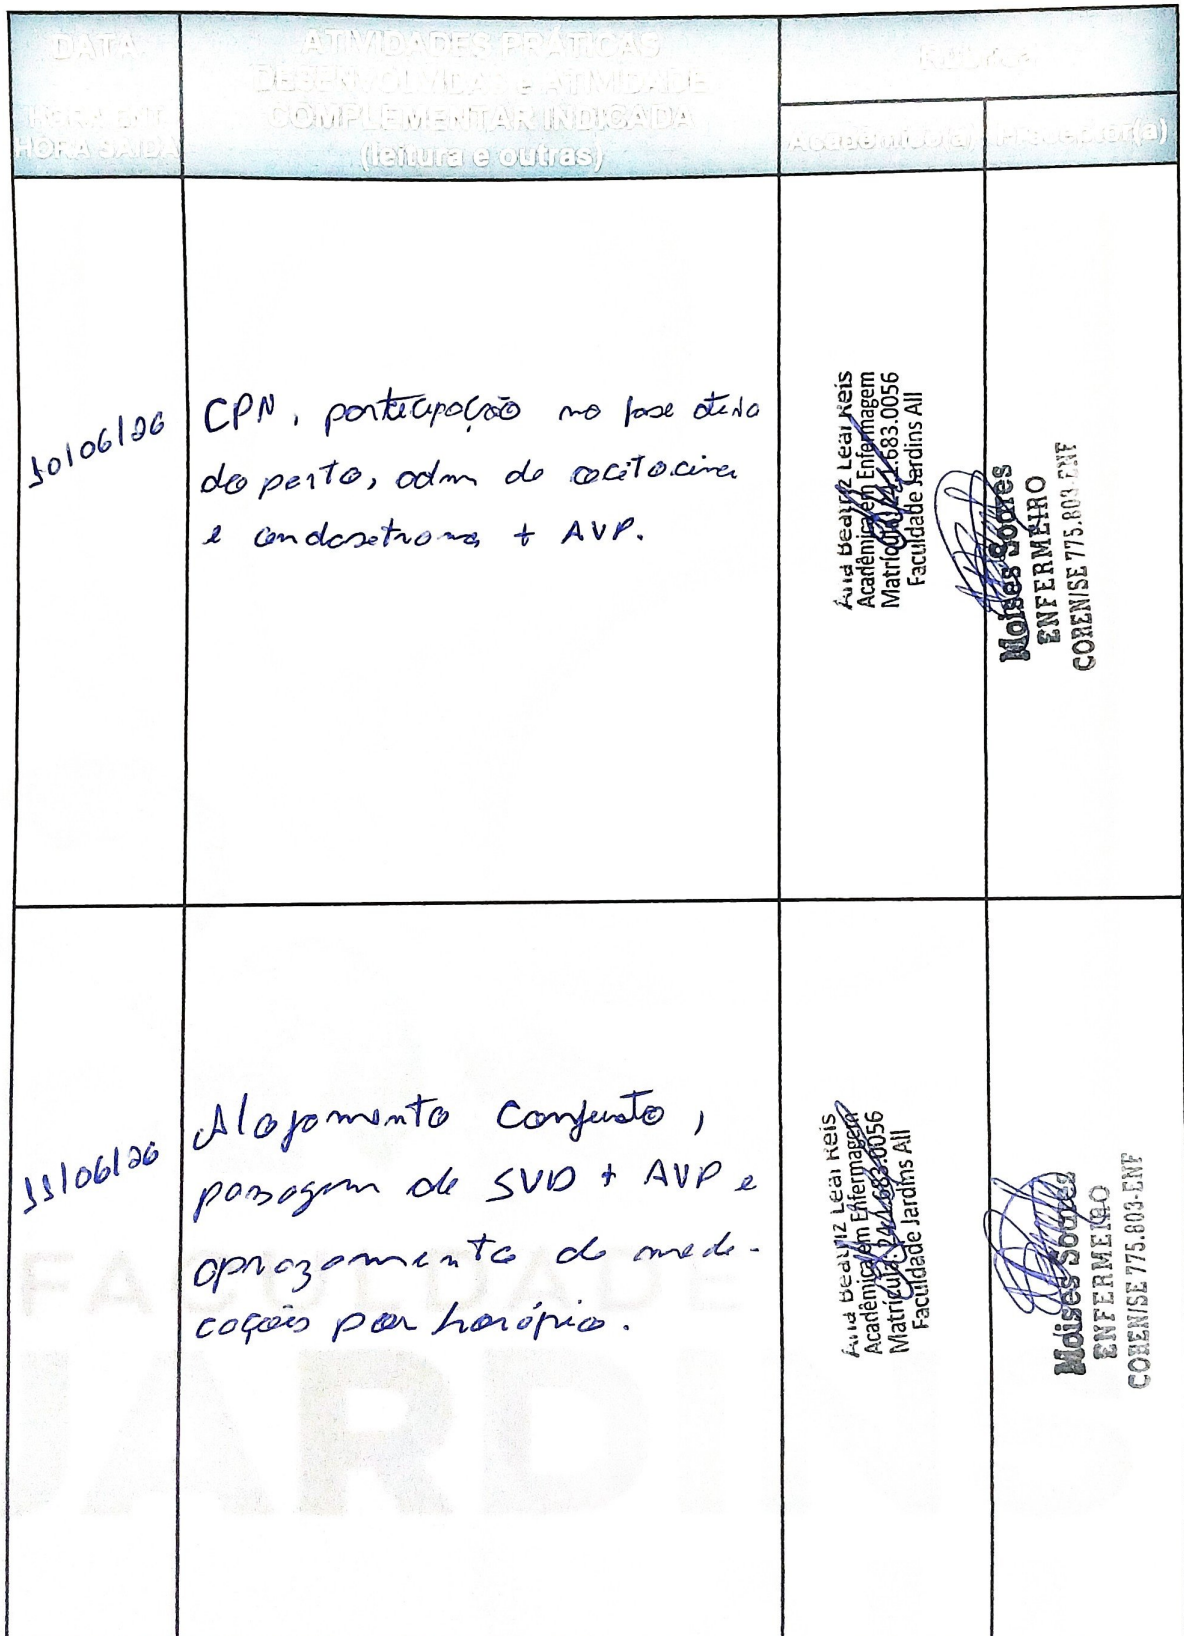 DATA
HORA ENT
HORA SAÍDA
ATIVIDADES PRÁTICAS
DESENVOLVIDAS E ATIVIDADE
COMPLEMENTAR INDICADA
(leitura e outras)
Acadêmico(a)
Preceptor(a)
10/06/26
CPN, participação na fase ativa
do parto, adm de ocitocina
e ondasetrona + AVP.
Ana Beatriz Leal Reis
Acadêmica em Enfermagem
Matrícula: 241.683.0056
Faculdade Jardins All
Moises Soares
ENFERMEIRO
COREN/SE 775.803-ENF
11/06/26
Alojamento Conjunto,
passagem de SVD + AVP e
aprazamento de medi-
cações por horário.
Ana Beatriz Leal Reis
Acadêmica em Enfermagem
Matrícula: 241.683.0056
Faculdade Jardins All
Moises Soares
ENFERMEIRO
COREN/SE 775.803-ENF
FACULDADE
JARDINS